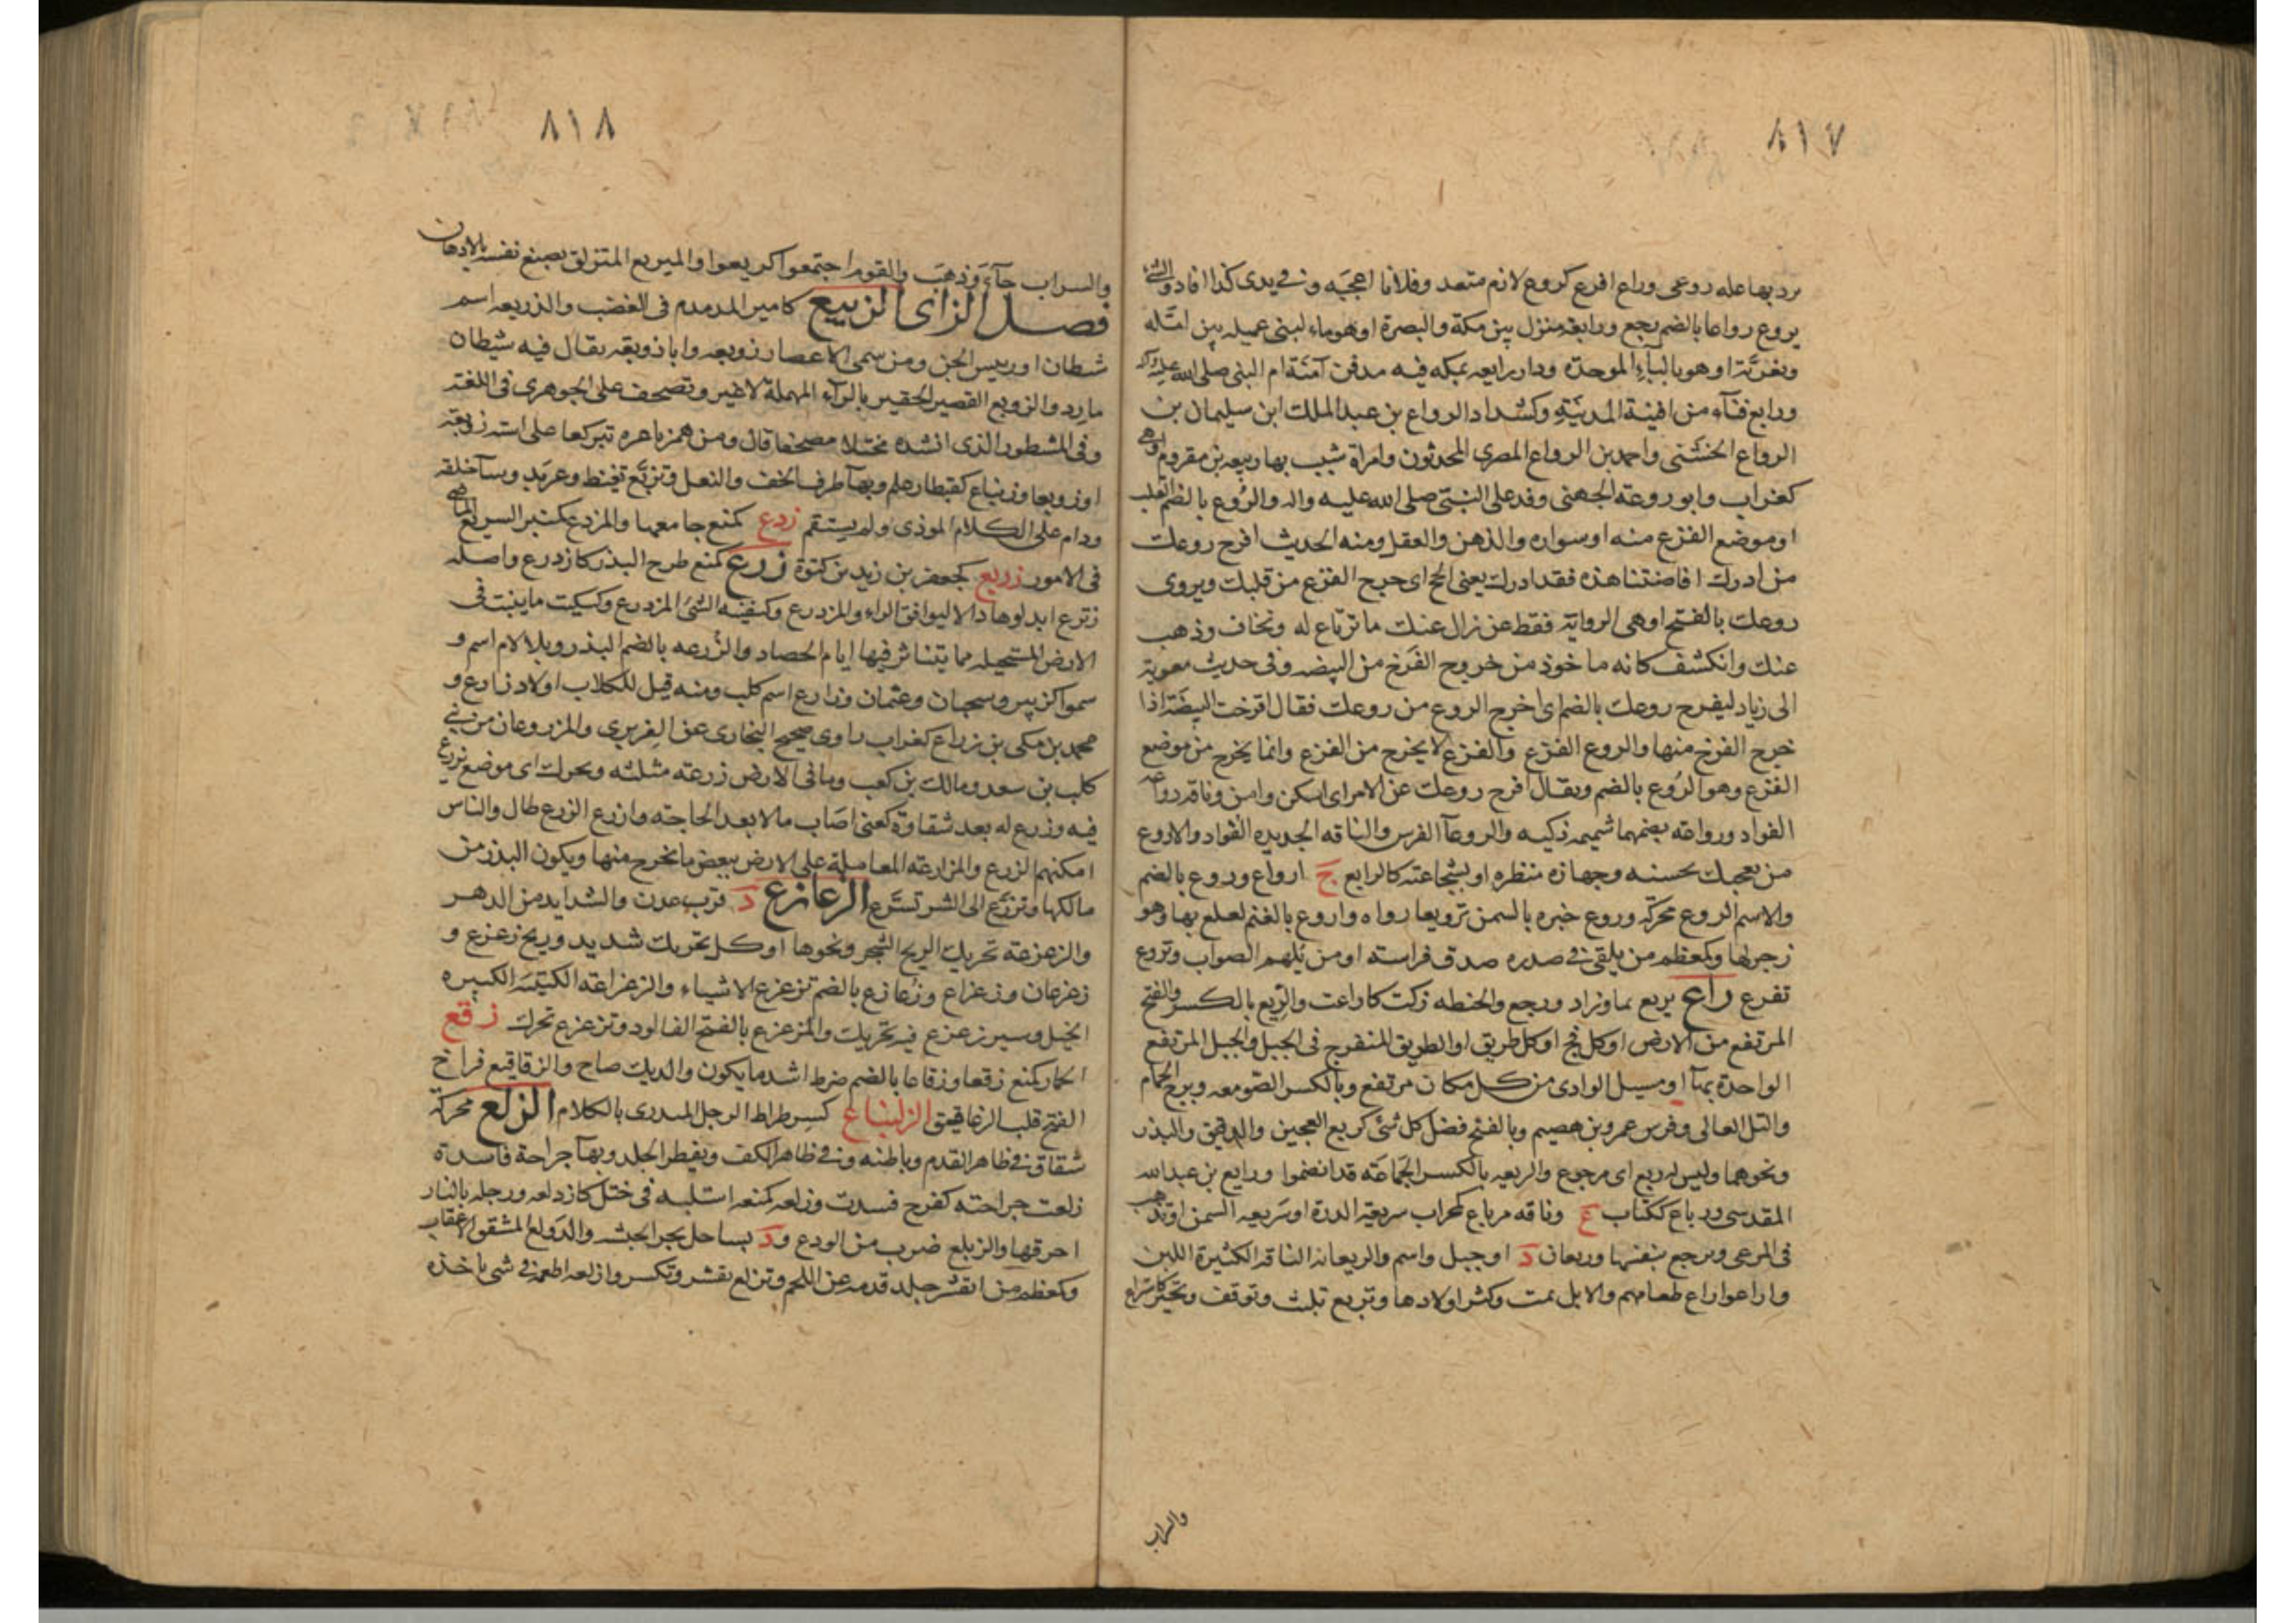 ٨١٧
برد بها عله روعى وراع افرع كروع لازم متعد وفلانا اعجبه وفى يدى كذا افاد والشئ
يروع رواعا بالضم رجع ورابعة منزل بين مكة والبصرة او هو ماء لبنى عميله بين امتله
وبغرته او هو بالباء الموحدة ودار رابعه بمكه فيه مدفن آمنة ام النبى صلى الله عليه
ورابع فنآء من افنية المدينة وكشداد الرواع بن عبد الملك ابن سليمان بن
الرواع الخشنى واحمد بن الرواع المصرى المحدثون وامراة شبب بها ربيعه بن مقروم وهى
كغراب وابو روعة الجهنى وفد على النبى صلى الله عليه واله والروع بالضم القلب
او موضع الفزع منه او سواده والذهن والعقل ومنه الحديث افرح روعك
من ادرك افاضتنا هذه فقد ادرك يعنى الحج اى خرج الفزع من قلبك ويروى
روعك بالفتح او هى الرواية فقط عن زال عنك ما ترتاع له وتخاف وذهب
عنك وانكشف كانه ماخوذ من خروج الفرخ من البيضه وفى حديث معوية
الى زياد ليفرح روعك بالضم اى اخرج الروع من روعك فقال افرخت البيضة اذا
خرج الفرخ منها والروع الفزع والفزع لا يخرج من الفزع وانما يخرج من موضع
الفزع وهو الروع بالضم ويقال افرح روعك عن الامر اى اسكن وامن وناقة رواعة
الفواد وروا عة بضمهما شهيمه ذكيه والروعآ الفرس والناقه الحديده الفواد والاروع
من يعجبك بحسنه وجهازه منظره او بشجاعته كالرايع ج ارواع وروع بالضم
والاسم الروع محركة وروع خبزه بالسمن ترويعا رواه واروع بالغنم لعلع بها وهو
زجر لها وكمعظم من يلقى فى صدره صدق فراسته او من يلهم الصواب وتروع
تفزع راع يريع نما وزاد ورجع والحنطه زكت كاراعت والريع بالكسر والفتح
المرتفع من الارض او كل فج او كل طريق او الطريق المنفرج فى الجبل والجبل المرتفع
الواحدة بهآ او مسيل الوادى من كل مكان مرتفع وبالكسر الصومعه وبرج الحمام
والتل العالى وفرس عمرو بن هصيم وبالفتح فضل كل شئ كريع العجين والدقيق والبذر
ونحوهما وليس له ريع اى مرجوع والريعه بالكسر الجماعة قد انضموا ورايع بن عبد الله
المقدسى ورياع ككتاب ع وناقه مرياع كمحراب سريعة الدرة او سريعه السمن او تذهب
فى المرعى وترجع بنفسها وريعان د او جبل واسم والريعانه الناقة الكثيرة اللبن
واراعوا راع طعامهم والابل نمت وكثر اولادها وتريع تلبث وتوقف وتحير كاستراع
والسراب
٨١٨
والسراب جآء وذهب والقوم اجتمعوا كريعوا والمير يع المتزلق بصبغ نفسه بالادهان
فصل الزاى الزبيع كامير المدمدم فى الغضب والذريعه اسم
شطان او رييس الجن ومن سمى الاعصار زوبعه وابا زوبعة يقال فيه شيطان
مارد والزوبع القصير الحقير بالرآء المهملة لا غير وتصحف على الجوهرى فى اللغة
وفى المشطور الذى انشده مختلا مصحفا قال ومن همزنا عزه تبركعا على استه زوبعة
او زوبعا وزنباع كقنطار علم وبهآ طرف الخف والنعل وتزبع تغيظ وعربد وسآ خلقه
ودام على الكلام الموذى ولم يستقم زدع كمنع جامعها والمزدع كمنبر السريع الماضى
فى الامور زربع كجعفر بن زيد بن كثوة زرع كمنع طرح البذر كازدرع واصله
زترع ابدلوها دالا ليوافق الراء والمزدرع وكسفينه الشئ المزدرع وكسكيت ما ينبت فى
الارض المستحيله مما يتناثر فيها ايام الحصاد والزرعه بالضم البذر وبلا لام اسم و
سموا كزبير وسحبان وعثمان وزارع اسم كلب ومنه قيل للكلاب اولاد زارع و
محمد بن مكى بن زراع كغراب راوى صحيح البخارى عن الفربرى والمزروعان من بنى
كلب بن سعد ومالك بن كعب وما فى الارض زرعة مثلثه ويحرك اى موضع يزرع
فيه وزرع له بعد شقاوة كعنى اصاب مالا بعد الحاجة وازرع الزرع طال والناس
امكنهم الزرع والمزارعة المعاملة على الارض ببعض ما يخرج منها ويكون البذر من
مالكها وتزرع الى الشر تسرع الزعازع د قرب عدن والشدايد من الدهر
والزعزعة تحريك الريح الشجر ونحوها او كل تحريك شديد وريح زعزع و
زعزعان وزعزاع وزعازع بالضم تزعزع الاشياء والزعزاعة الكتيبة الكبيره
الخيل وسير زعزع فيه تحريك والمزعزع بالفتح الفالود وتزعزع تحرك زقع
الحمار كمنع زقعا وزقاعا بالضم ضرط اشد ما يكون والديك صاح والزقاقيع فراخ
الفتح قلب الزعاقيق الزلنباع كسرطراط الرجل المندرى بالكلام الزلع محركة
شقاق فى ظاهر القدم وباطنه وفى ظاهر الكف وتفطر الجلد وبهآ جراحة فاسدة
زلعت جراحته كفرح فسدت وزلعه كمنعه استلبه فى ختل كازدلعه ورجله بالنار
احرقها والزيلع ضرب من الودع ود بساحل بحر الحبشه والدولع المشقق الاعقاب
وكمعظم من انقشر جلد قدمه عن اللحم وتزلع تقشر وتكسر وازلعه اطمعه فى شى ياخذه